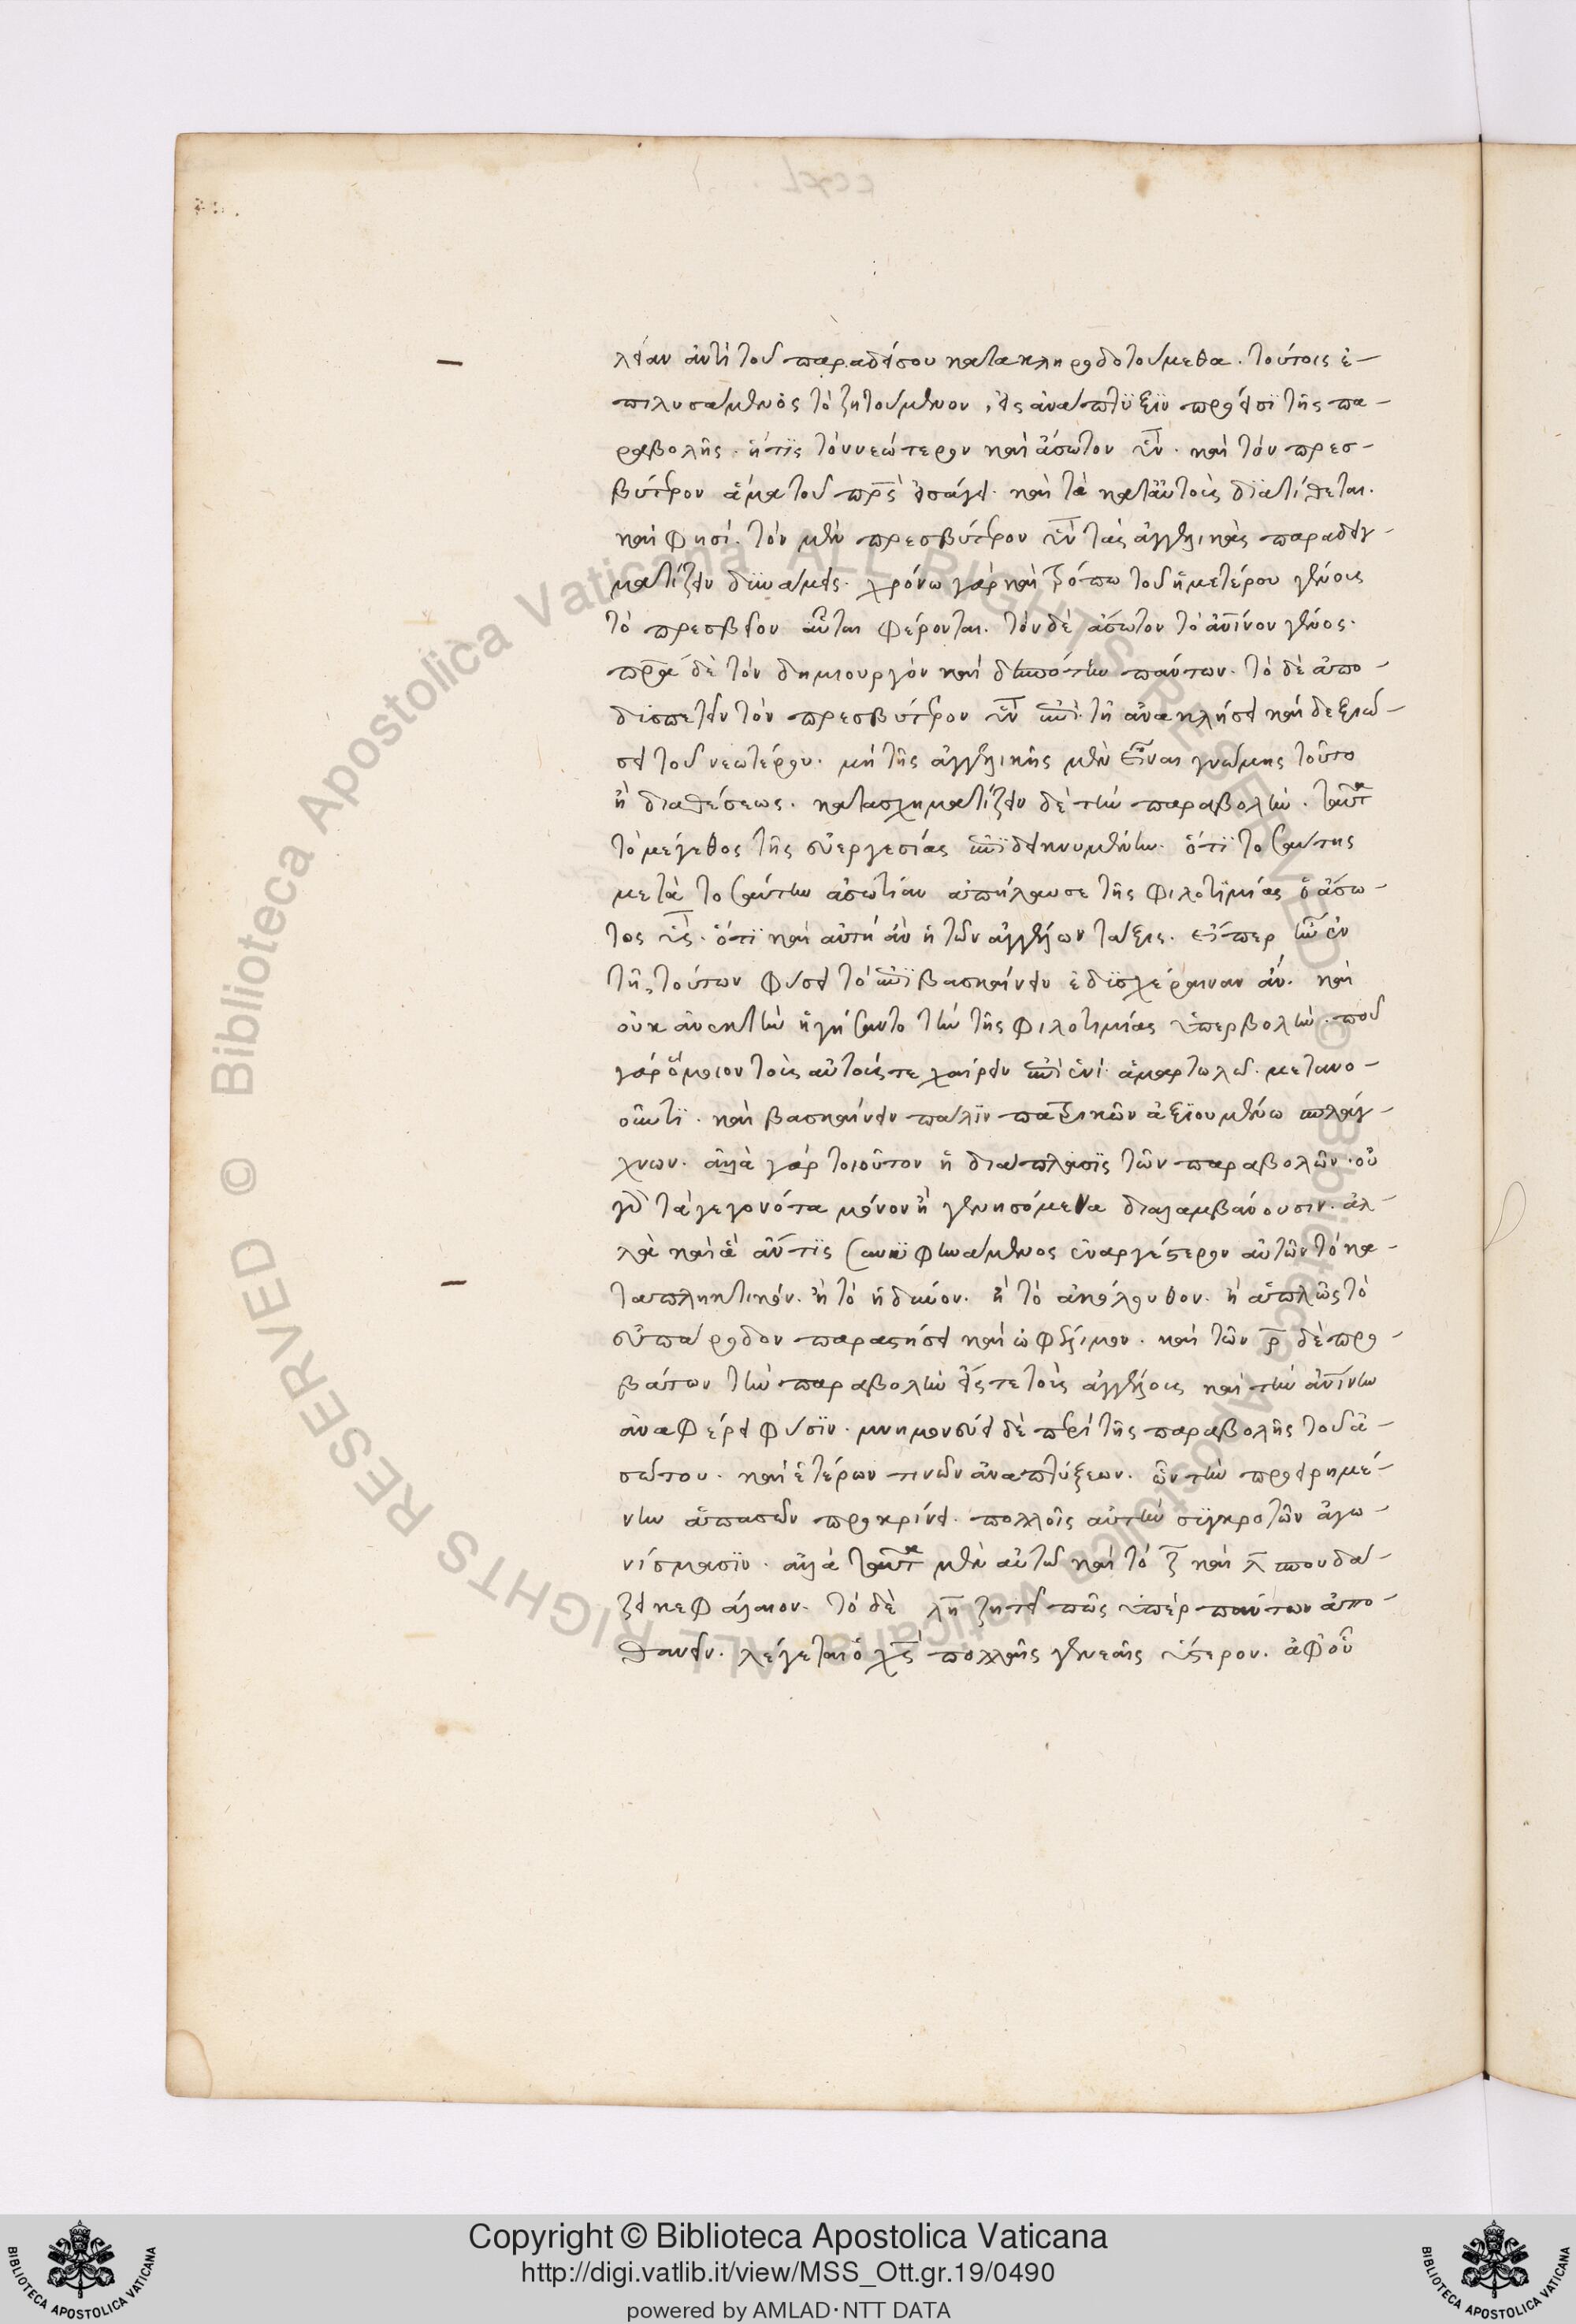 λείαν ἀντὶ τοῦ παραδείσου κατακληροδοτούμεθα. τούτοις ἐ-
πιλυσάμενος τὸ ζητούμενον, εἰς ἀνάπτυξιν πρόεισι τῆς πα-
ραβολῆς. ἥτις τὸν νεώτερον καὶ ἄσωτον υἱν. καὶ τὸν πρεσ-
βύτερον ἅμα τοῦ πρς εἰσάγει. καὶ τὰ κατ' αὐτοὺς διατίθεται.
καὶ φησί. τὸν μὲν πρεσβύτερον υἱν τὰς ἀγγελικὰς παραδειγ-
ματίζειν δυνάμεις. χρόνω γὰρ καὶ τρόπω τοῦ ἡμετέρου γένους
τὸ πρεσβεῖον αὗται φέρονται. τὸν δὲ ἄσωτον τὸ ἀνίνον γένος.
πρα δὲ τὸν δημιουργὸν καὶ δεσπότην πάντων. τὸ δὲ ἀπο-
δυσπετεῖν τὸν πρεσβύτερον υἱν ἐπὶ τῆ ἀνακλήσει καὶ δεξιώ-
σει τοῦ νεωτέρου. μὴ τῆς ἀγγελικῆς μὲν εἶναι γνώμης τοῦτο
ἢ διαθέσεως. κατασχηματίζειν δὲ τὴν παραβολὴν. ταῦτα
τὸ μέγεθος τῆς εὐεργεσίας ἐπιδεικνυμένην. ὅτι τοσαύτης
μετὰ τοσαύτην ἀσωτίαν ἀπήλαυσε τῆς φιλοτιμίας ὁ ἄσω-
τος υἱς. ὅτι καὶ αὐτὴ ἂν ἡ τῶν ἀγγέλων τάξις. εἴπερ ἦν ἐν
τῆ τούτων φύσει τὸ ἐπιβασκαίνειν ἐδυσχέραιναν ἄν. καὶ
οὐκ ἀνεκτὴν ἡγήσαντο τὴν τῆς φιλοτιμίας ὑπερβολὴν. ποῦ
γὰρ ὅμοιον τοῖς αὐτοῖς τε χαίρειν ἐπὶ ἑνὶ ἁμαρτωλῶ μετανο-
οῦντι. καὶ βασκαίνειν πάλιν πατρικῶν ἀξιουμένω σπλάγ-
χνων. ἀλλὰ γὰρ τοιοῦτον ἡ διάπλασις τῶν παραβολῶν. οὐ
γὰρ τὰ γεγονότα μόνον ἢ γενησόμενα διαλαμβάνουσιν. ἀλ-
λὰ καὶ ἃ ἄν τις συνυφηνάμενος ἐναργέστερον αὐτῶν τὸ κα-
ταπληκτικόν. ἢ τὸ ἡδεῖον. ἢ τὸ ἀκόλουθον. ἢ ἁπλῶς τὸ
εὐπάροδον παραστήσει καὶ ὠφέλιμον. καὶ τῶν ρ δὲ προ-
βάτων τὴν παραβολὴν εἴς τε τοὺς ἀγγέλους καὶ τὴν ἀνίνην
ἀναφέρει φύσιν. μνημονεύει δὲ περὶ τῆς παραβολῆς τοῦ ἀ-
σώτου. καὶ ἑτέρων τινῶν ἀναπτύξεων. ὧν τὴν προειρημέ-
νην ἁπασῶν προκρίνει. πολλοῖς αὐτὴν συγκροτῶν ἀγω-
νίσμασιν. ἀλλὰ ταῦτα μὲν αὐτῶ καὶ τὸ ζ καὶ λ σπουδά-
ζει κεφάλαιον. τὸ δὲ λη ζητεῖ πῶς ὑπὲρ πάντων ἀπο-
θανεῖν. λέγεται ὁ χς πολλαῖς γενεαῖς ὕστερον. ἀφ' οὗ